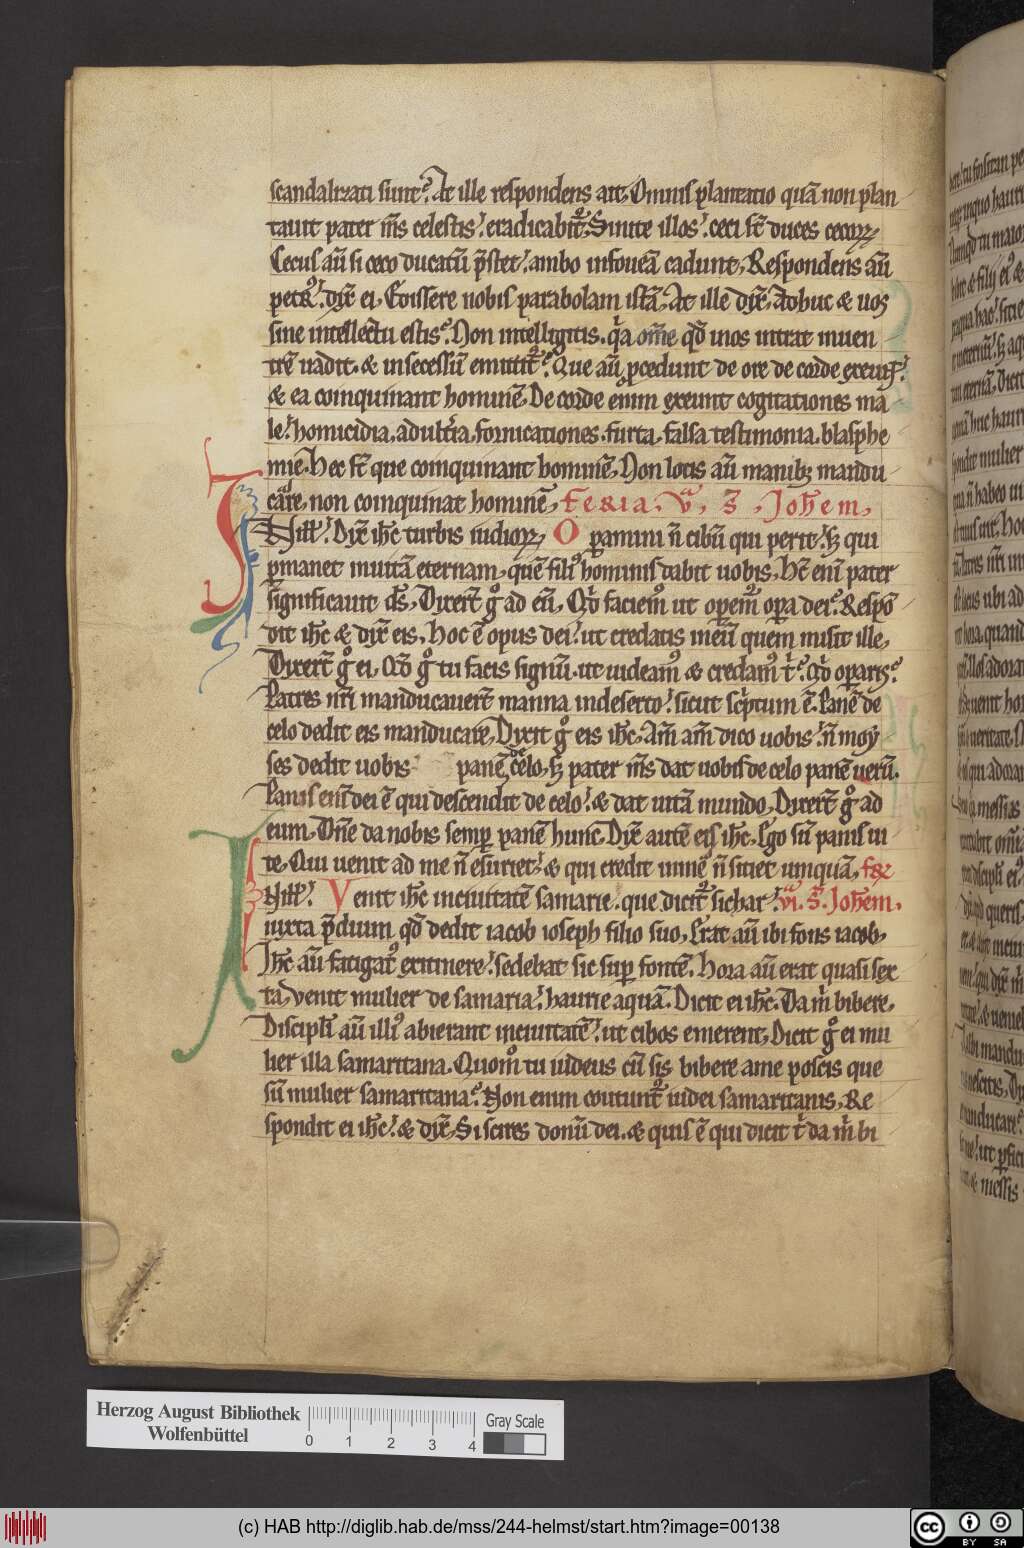 scandalizati sunt? At ille respondens ait, Omnis plantatio quā non plan
tauit pater m̄s celestis. eradicabitᷣ. Sinite illos. ceci st̄ duces cecoꝝ
Cecus aū si ceco ducatū p̄stet. ambo in foueā cadunt, Respondens aū
petrꝰ. dix̄ ei, Edissere nobis parabolam istā. At ille dix̄, Adhuc & uos
sine intellectu estis? Non intelligitis. qͥa om̄e qđ in os intrat in uen
trē uadit. & in secessū emittitᷣ? Que aū ꝓcedunt de ore de corde exeunt.
& ea coinquinant hominē, De corde enim exeunt cogitationes ma
le. homicidia, adultͥa, fornicationes. furta. falsa testimonia. blasphe
mie. Hec st̄ que coinquinant hominē, Non lotis aū manibꝫ mandu
care, non coinquinat hominē, Feria. v͛ª. S̄. Johem,
IN illͦ. Dix̄ ih̄c turbis iudioꝝ, Operamini n̄ cibū qui perit. sꝫ qui
ꝑmanet in uitā eternam, quē filiꝰ hominis dabit uobis, Hc̄ eni pater
significauit ds̄, Dixert̄ gͦ ad eū, Qͥd faciemꝰ ut opemꝰ opa dei? Respō
dit ih̄c & dix̄ eis, Hoc ē opus dei. ut credatis in eū quem misit ille,
Dixert̄ gͦ ei, Qđ gͦ tu facis signū. ut uideamꝰ & credamꝰ tͥ? Qͥd operaris?
Patres nr̄i manducauert̄ manna in deserto. sicut scͥptum ē. Panē de
celo dedit eis manducare, Dixit gͦ eis ih̄c, Am̄ am̄ dico uobis. n̄ moy
ses dedit uobis panē de celo, sꝫ pater m̄s dat uobis de celo panē uerū.
Panis eni dei ē qui descendit de celo. & dat uitā mundo, Dixert̄ gͦ ad
eum, Dn̄e da nobis semꝑ panē hunc. Dix̄ autē eis ih̄c, Ego sū panis ui
te. Qui uenit ad me n̄ esuriet. & qui credit in me n̄ sitiet umquā, fer̄
IN illͦ. Venit ih̄c in ciuitatē samarie. que dicitᷣ sichar. viª. S̄. Johem.
iuxta p̄dium qđ dedit iacob ioseph filio suo, Erat aū ibi fons iacob,
Ih̄c aū fatigatꝰ ex itinere. sedebat sic suꝑ fontē. Hora aū erat quasi sex
ta, Venit mulier de samaria. haurire aquā. Dicit ei ih̄c. Da mͥ bibere,
Discipli aū illiꝰ abierant in ciuitatē. ut cibos emerent, Dicit gͦ ei mu
lier illa samaritana. Quomͦ tu iudeus cū sis bibere a me poscis que
sū mulier samaritana? Non enim coutuntᷣ iudei samaritanis, Re
spondit ei ih̄c. & dix̄, Si scires donū dei. & quis ē qui dicit tͥ da mͥ bi
Herzog August Bibliothek
Wolfenbüttel
0 1 2 3 4
Gray Scale
(c) HAB http://diglib.hab.de/mss/244-helmst/start.htm?image=00138
cc BY SA